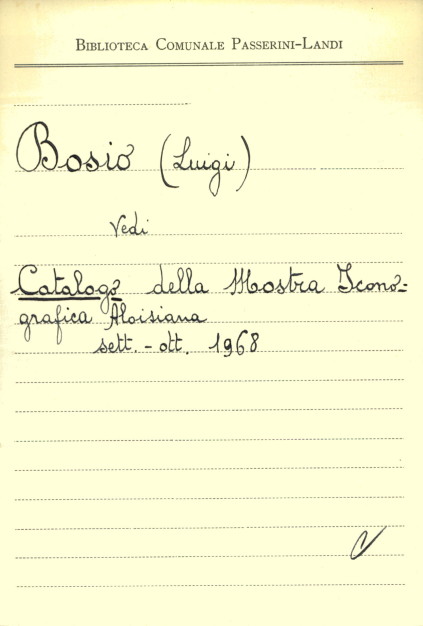 Biblioteca Comunale Passerini-Landi
Bosio (Luigi)
Vedi
Catalogo della Mostra Icono-
grafica Aloisiana
sett. - ott. 1968